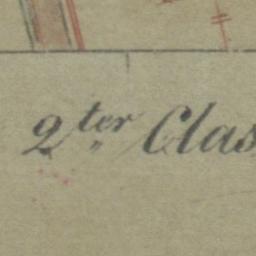 2ter Clas